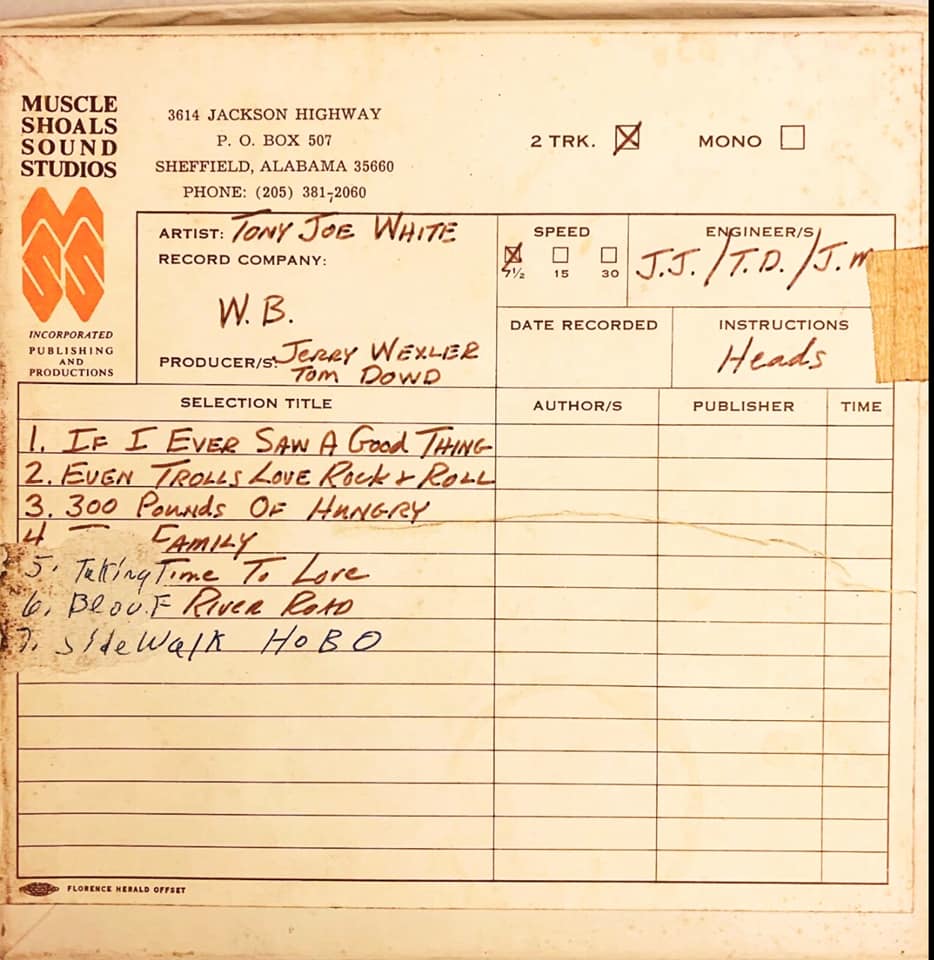 MUSCLE
SHOALS
SOUND
STUDIOS
INCORPORATED
PUBLISHING
AND
PRODUCTIONS
3614 JACKSON HIGHWAY
P. O. BOX 507
SHEFFIELD, ALABAMA 35660
PHONE: (205) 381-2060
2 TRK. MONO
ARTIST: TONY JOE WHITE
RECORD COMPANY:
W. B.
PRODUCER/S: JERRY WEXLER
TOM DOWD
SPEED
7½ 15 30
ENGINEER/S
J.J. / T.D. / J.W
DATE RECORDED
INSTRUCTIONS
Heads
SELECTION TITLE AUTHOR/S PUBLISHER TIME
1. IF I EVER SAW A Good THING
2. EVEN TROLLS LOVE ROCK & ROLL
3. 300 POUNDS OF HUNGRY
4 FAMILY
5. Taking Time To Love
6. RIVER ROAD
7. SideWalk HOBO
FLORENCE HERALD OFFSET